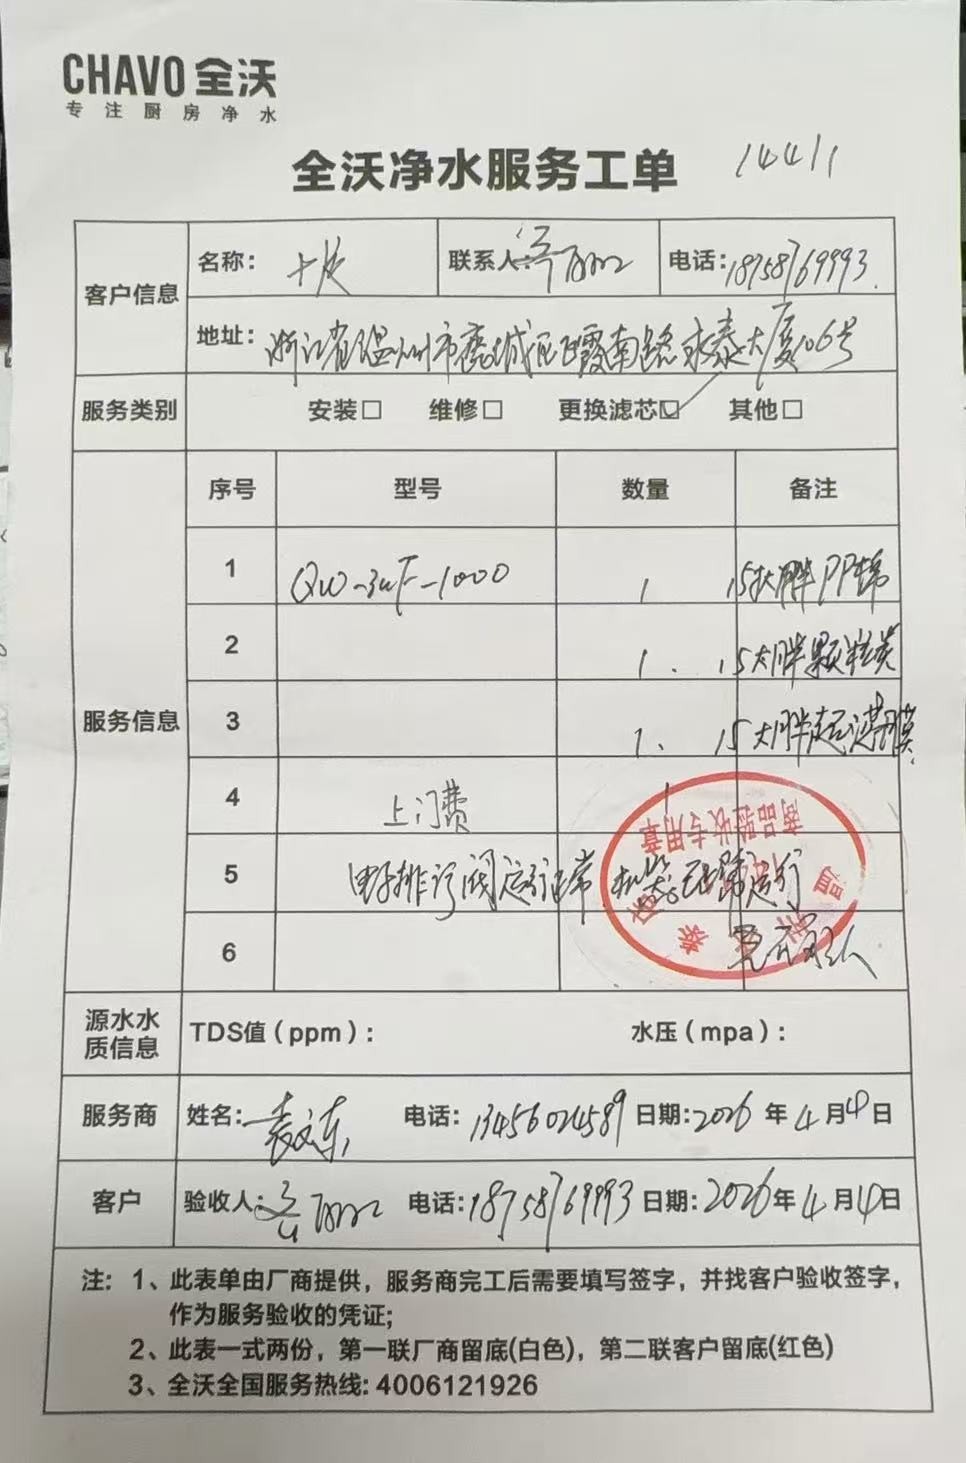 CHAVO 全沃
专注厨房净水
全沃净水服务工单 14411
客户信息 名称: 联系人: 电话: 18758769993
地址: 浙江省温州市鹿城区飞霞南路永泰大厦106号
服务类别 安装□ 维修□ 更换滤芯☑ 其他□
服务信息 序号 型号 数量 备注
1 QW-3UF-1000 1 15大胖PP棉
2 1. 15大胖颗粒炭
3 1. 15大胖超滤膜
4 上门费 1
商品验收专用章
5 电子排污阀运行正常 机器正常运行
6
源水水质信息 TDS值(ppm): 水压(mpa):
服务商 姓名: 袁文东 电话: 13456024589 日期: 2026年4月4日
客户 验收人: 电话: 18758769993 日期: 2026年4月4日
注: 1、此表单由厂商提供，服务商完工后需要填写签字，并找客户验收签字，
作为服务验收的凭证;
2、此表一式两份，第一联厂商留底(白色)，第二联客户留底(红色)
3、全沃全国服务热线: 4006121926